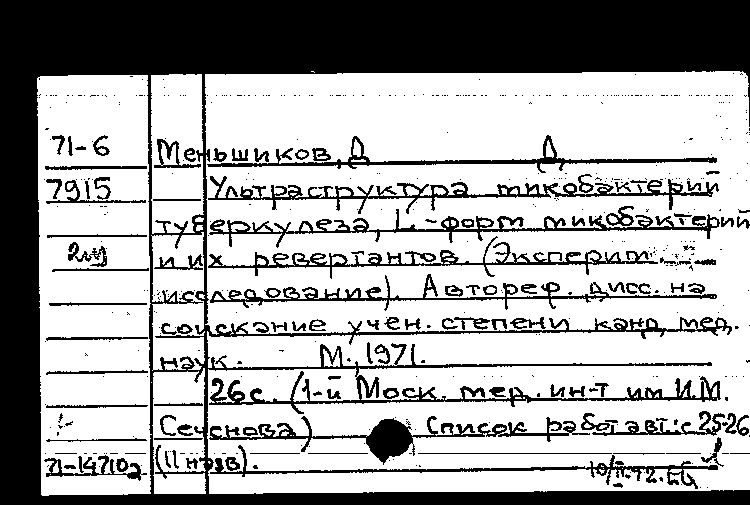 71-6 Меньшиков, Д. Д.
7915 Ультраструктура микобактерий
туберкулеза, L-форм микобактерий
и их ревертантов. (Эксперим.
исследование). Автореф. дисс. на
соискание учен. степени канд. мед.
наук. М., 1971.
26 с. (1-й Моск. мед. ин-т им И.М.
Сеченова) Список работ авт.: с 25-26
71-14710а (11 назв).